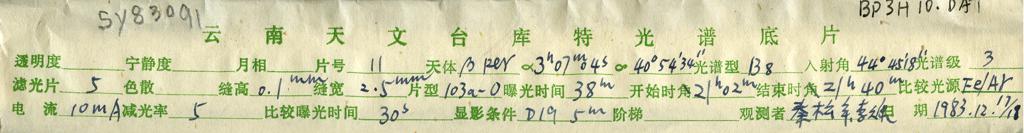 SY83091
BP3H10.DAT
云南天文台库特光谱底片
透明度 宁静度 月相 片号 11 天体 β per α 3ʰ07ᵐ04ˢ α 40°54′34″ 光谱型 B8 入射角 44°45′18″ 光谱级 3
滤光片 5 色散 缝高 0.1ᵐᵐ 缝宽 2.5ᵐᵐ 片型 103a-O 曝光时间 38ᵐ 开始时角 21ʰ02ᵐ 结束时角 21ʰ40ᵐ 比较光源 Fe/Ar
电流 10mA 减光率 5 比较曝光时间 30ˢ 显影条件 D19 5ᵐ 阶梯 观测者 日期 1983.12.17/18